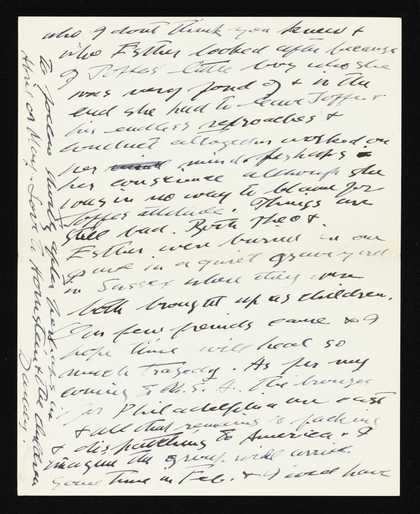 who I dont think you knew &
who Esther looked after because
of Joffe's little boy who she
was very fond of & in the
end she had to leave Joffe &
his endless reproaches &
conduct altogether worked on
her mind perhaps
her conscience although she
was in no way to blame for
Joffes attitude. Things are
still bad. Both Theo &
Esther were buried in one
grave in a quiet graveyard
in Sussex where they were
both brought up as children.
A few friends came & I
hope time will heal so
much Tragedy. As for my
coming to U.S.A. the bronze
for Philadelphia are cast
& all that remains is packing
& dispatching to America. I
imagine the group will arrive
some time in Feb. & I would have
to follow shortly after perhaps in
April or May. Love to Hornstein &